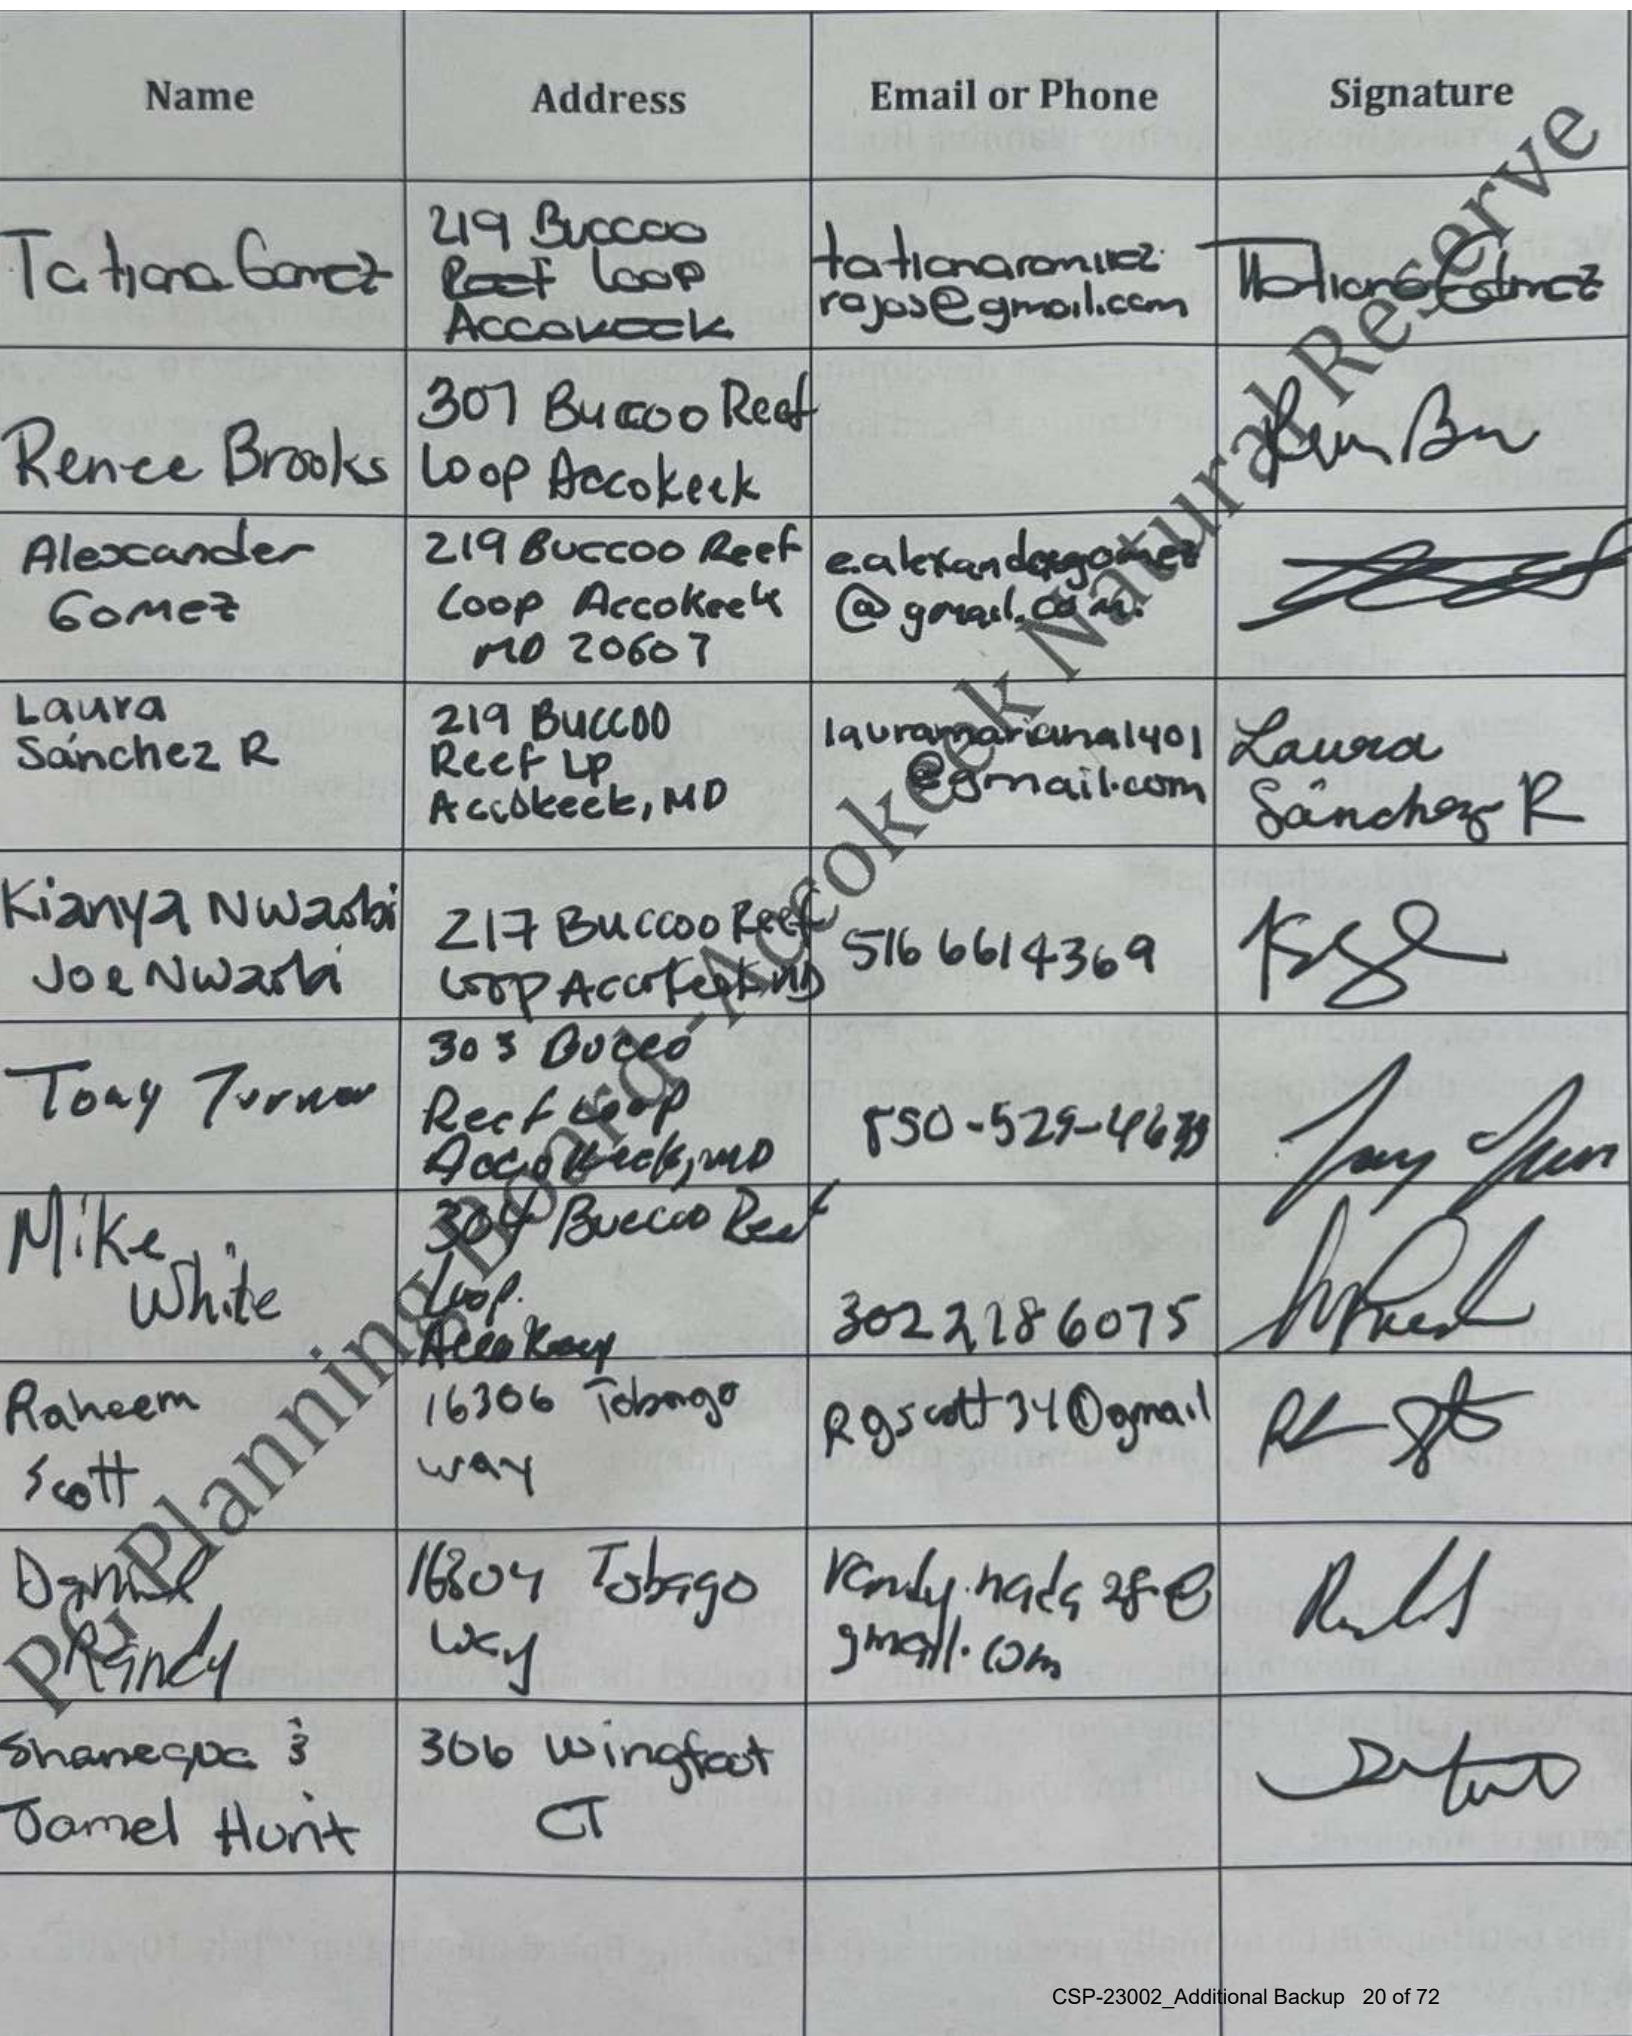 Name Address Email or Phone Signature
Tatiana Gomez
219 Buccoo
Reef Loop
Accokeek
tatianaramirez
rojas@gmail.com
Tatiana Gomez
Renee Brooks
307 Buccoo Reef
Loop Accokeek
Alexander
Gomez
219 Buccoo Reef
Loop Accokeek
MD 20607
e.alexandergomez
@gmail.com.
Laura
Sánchez R
219 Buccoo
Reef Lp
Accokeek, MD
lauramariana1401
@gmail.com
Laura
Sánchez R
Kianya Nwaobi
Joe Nwaobi
217 Buccoo Reef
Loop Accokeek MD
516 661 4369
Tony Turner
303 Bucco
Reef Loop
Accokeek, MD
Mike
White
304 Buccoo Reef
Loop.
302 218 6075
Raheem
Scott
16306 Tobago
way
Rgscott34@gmail
Daniel
Randy
16304 Tobago
Way
gmail.com
Shanequa &
Jamel Hunt
306 Wingfoot
CT
PG Planning Board-Accokeek Natural Reserve
CSP-23002_Additional Backup 20 of 72